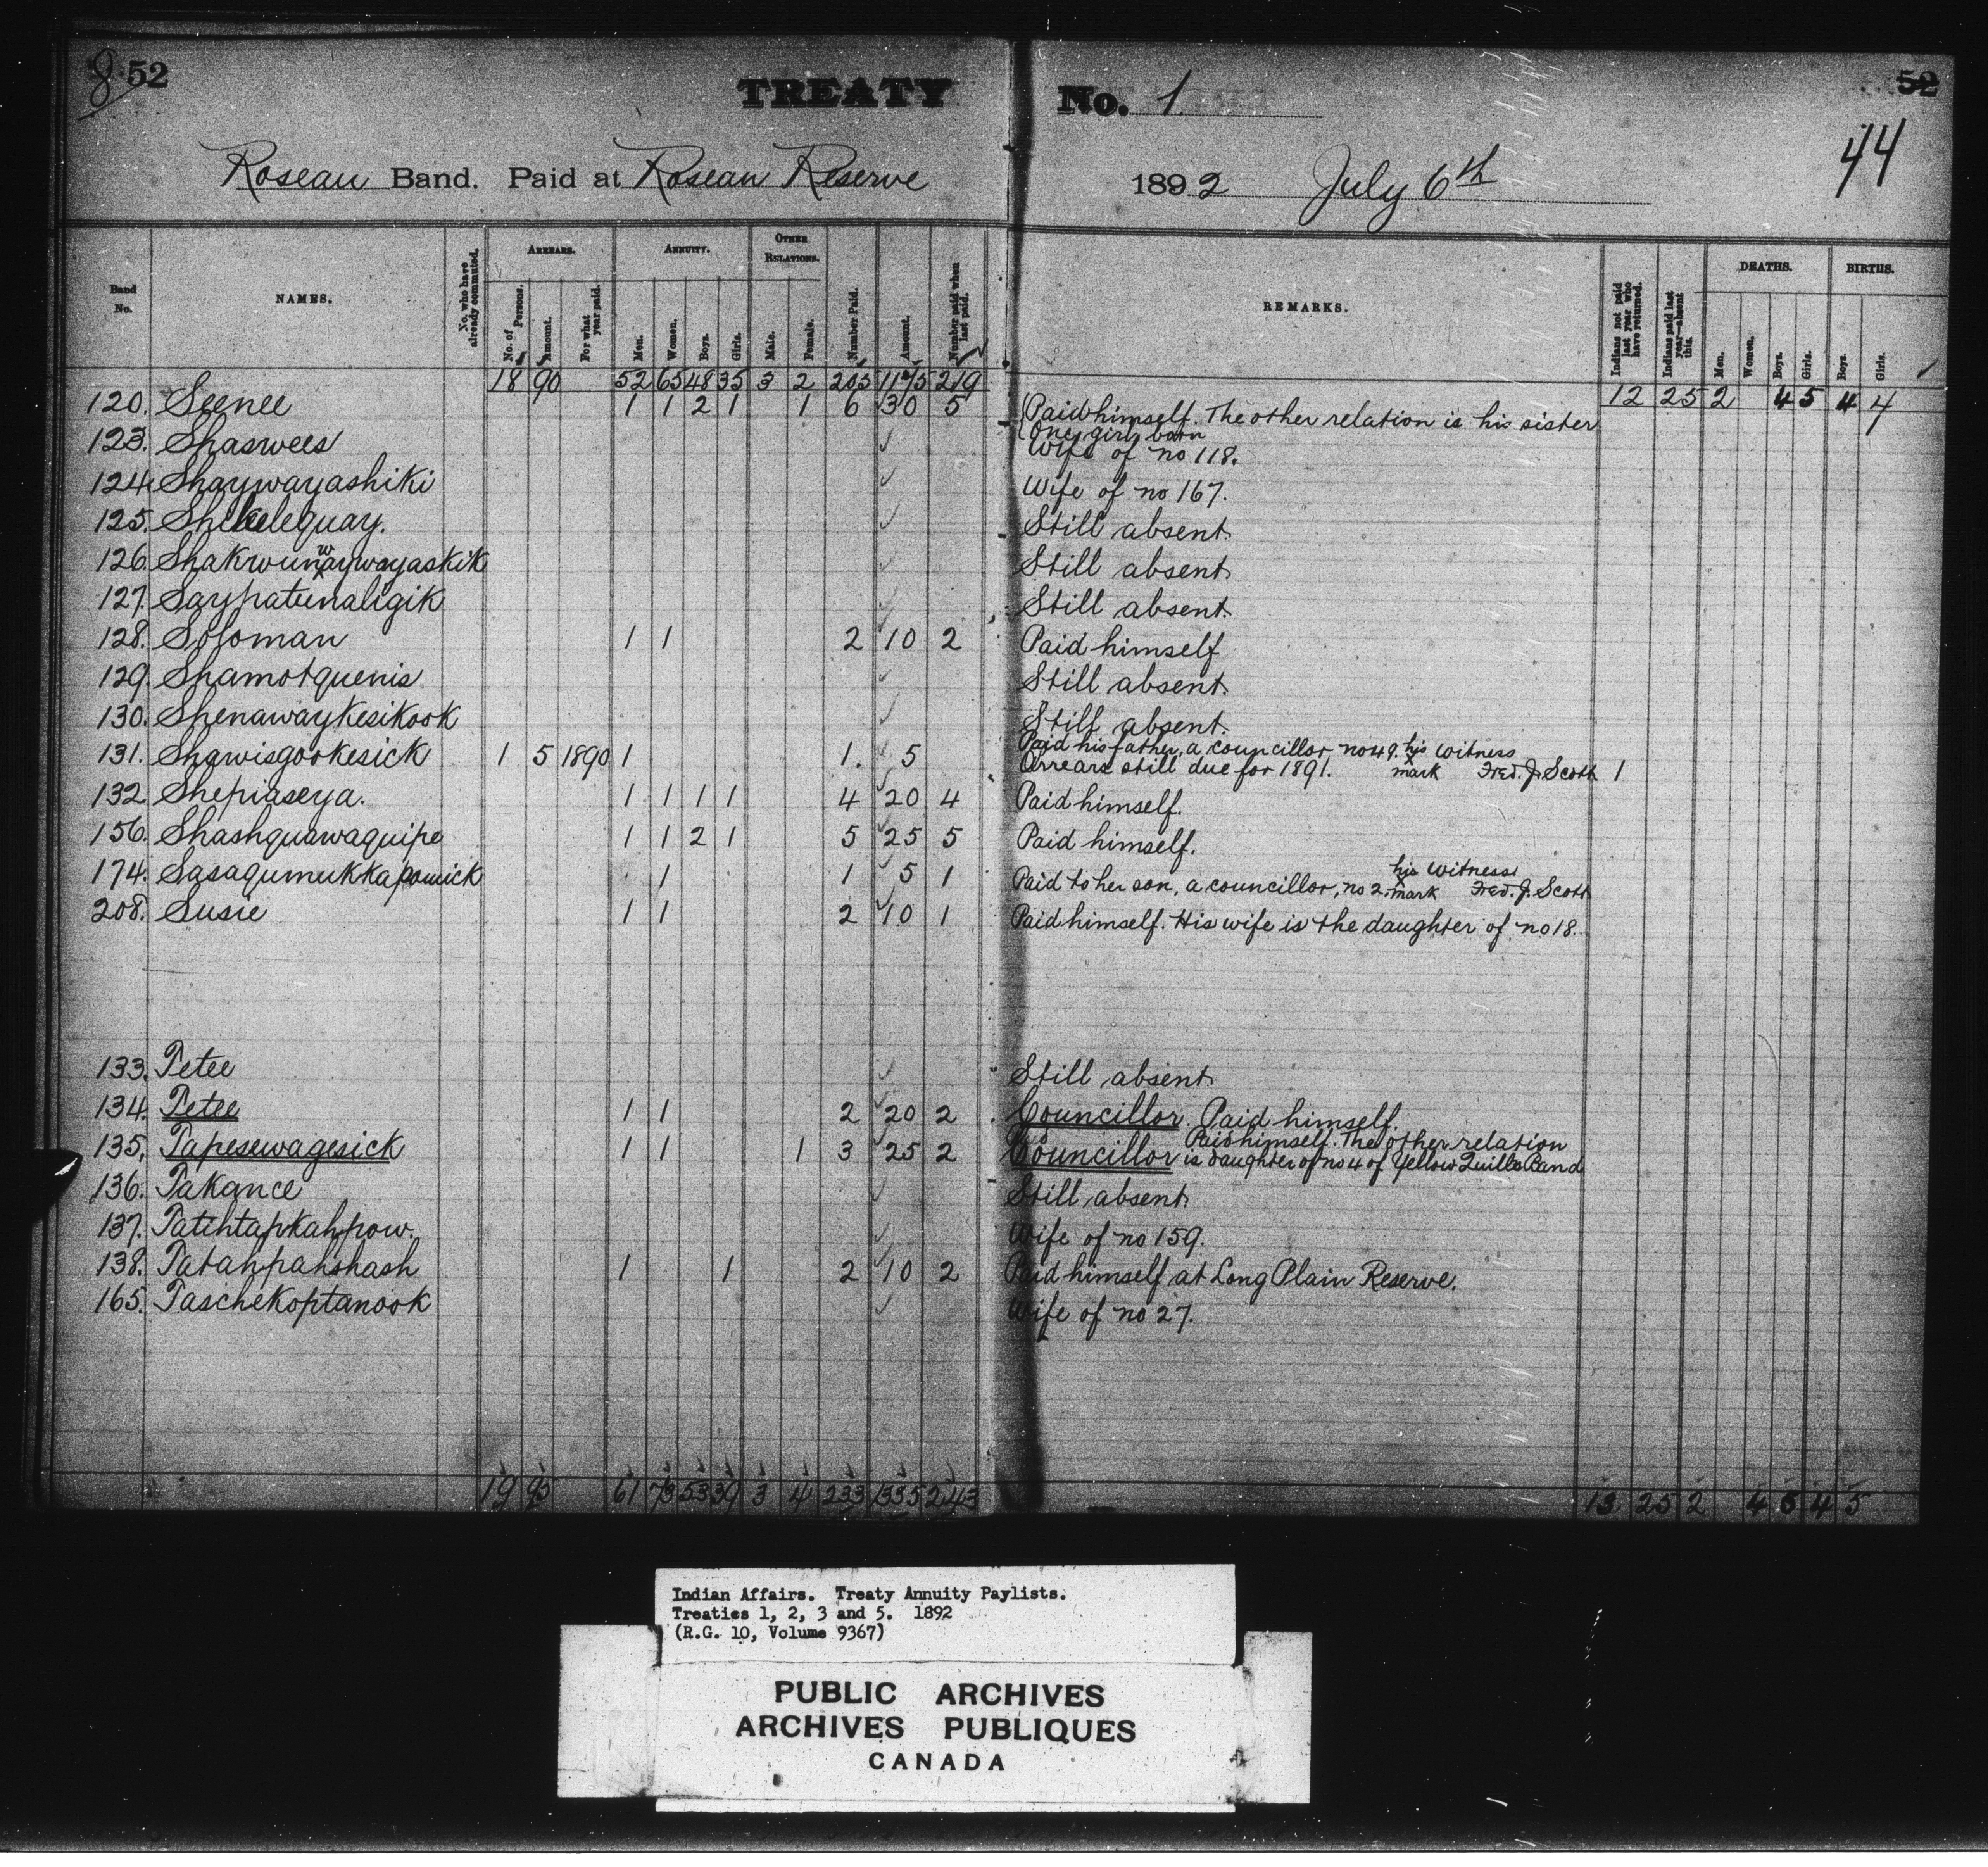 8 52
TREATY No. 1.
52
44
Roseau Band. Paid at Roseau Reserve 1892 July 6th
Band No. NAMES. No. who have already commuted. ARREARS. No. of Persons. Amount. For what year paid. ANNUITY. Men. Women. Boys. Girls. OTHER RELATIONS. Male. Female. Number Paid. Amount. Number paid when last paid. REMARKS. Indians not paid last year who have returned. Indians paid last year—absent this. DEATHS. Men. Women. Boys. Girls. BIRTHS. Boys. Girls.
18 90 52 65 48 35 3 2 205 1175 219 12 25 2 4 5 4 4
120. Seenee 1 1 2 1 1 6 30 5 Paid himself. The other relation is his sister
One girl born
123. Shaswees Wife of no 118.
124. Shaywayashiki Wife of no 167.
125. Still absent.
126. Still absent.
127. Saypatunaligik Still absent.
128. Soloman 1 1 2 10 2 Paid himself
129. Shamotquenis Still absent.
130. Shenawaykesikook Still absent.
131. Shawisgookesick 1 5 1890 1 1. 5 Paid his father, a councillor no 49. his witness
Arrears still due for 1891. x mark Fred. J. Scott 1
132 Shepiaseya. 1 1 1 1 4 20 4 Paid himself.
156. Shashquawaquipe 1 1 2 1 5 25 5 Paid himself.
174. Sasagumukkapowick 1 1 5 1 Paid to her son, a councillor, no 2. his x mark witness Fred. J. Scott
208. Susie 1 1 2 10 1 Paid himself. His wife is the daughter of no 18.
133. Tetee Still absent.
134. Tetee 1 1 2 20 2 Councillor. Paid himself.
135. Tapesewagesick 1 1 1 3 25 2 Councillor Paid himself. The other relation
is daughter of no 4 of Yellow Quills Band
136. Takance Still absent.
137. Tatchtapkahpow. Wife of no 159.
138. Tatahpahshash 1 1 2 10 2 Paid himself at Long Plain Reserve.
165. Taschekoptanook Wife of no 27.
19 95 61 73 53 39 3 4 233 1335 243 13 25 2 4 5 4 5
Indian Affairs. Treaty Annuity Paylists.
Treaties 1, 2, 3 and 5. 1892
(R.G. 10, Volume 9367)
PUBLIC ARCHIVES
ARCHIVES PUBLIQUES
CANADA